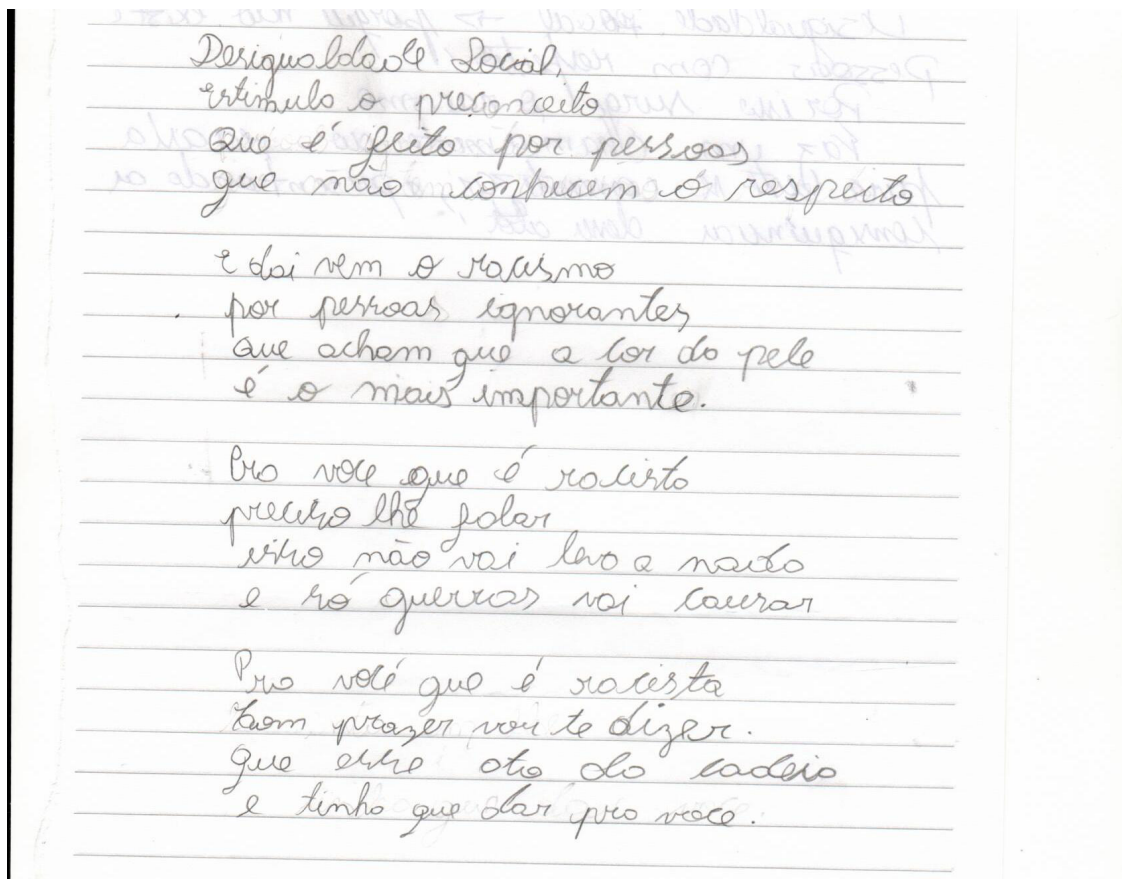 Desigualdade Social,
estimula o preconceito
que é feito por pessoas
que não conhecem o respeito
e dai vem o racismo
por pessoas ignorantes
que acham que a cor da pele
é o mais importante.
Pra voce que é racista
preciso lhe falar
isso não vai leva a nada
e só guerras vai causar
Pra você que é racista
com prazer vou te dizer.
que esse ato da cadeia
e tinha que dar pra voce.